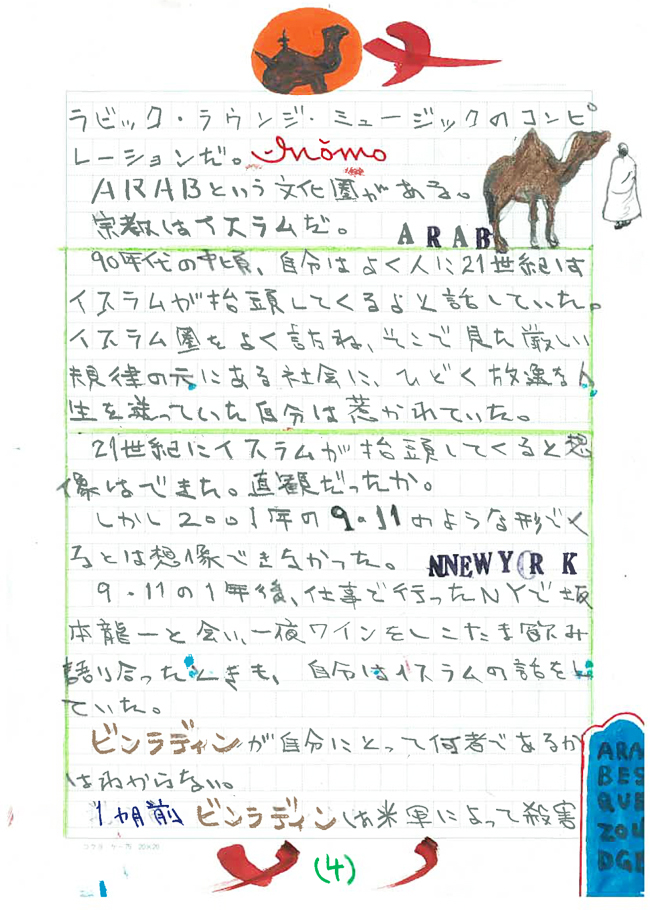 ラビック・ラウンジ・ミュージックのコンピ
レーションだ。Mömo
ARABという文化圏がある。
宗教はイスラムだ。
ARAB
90年代の中頃、自分はよく人に21世紀は
イスラムが抬頭してくるよと話していた。
イスラム圏をよく訪ね、そこで見た厳しい
規律の元にある社会に、ひどく放逸な人
生を送っていた自分は惹かれていた。
21世紀にイスラムが抬頭してくると想
像はできた。直観だったか。
しかし2001年の9.11のような形でく
るとは想像できなかった。
NNEWYORK
9・11の1年後、仕事で行ったNYで坂
本龍一と会い、一夜ワインをしこたま飲み
語り合ったときも、自分はイスラムの話をし
ていた。
ビンラディンが自分にとって何者であるか
はわからない。
1ヵ月前ビンラディンは米軍によって殺害
ARA
BES
QUE
ZOU
DGE
(4)
コクヨ ケー70 20×20